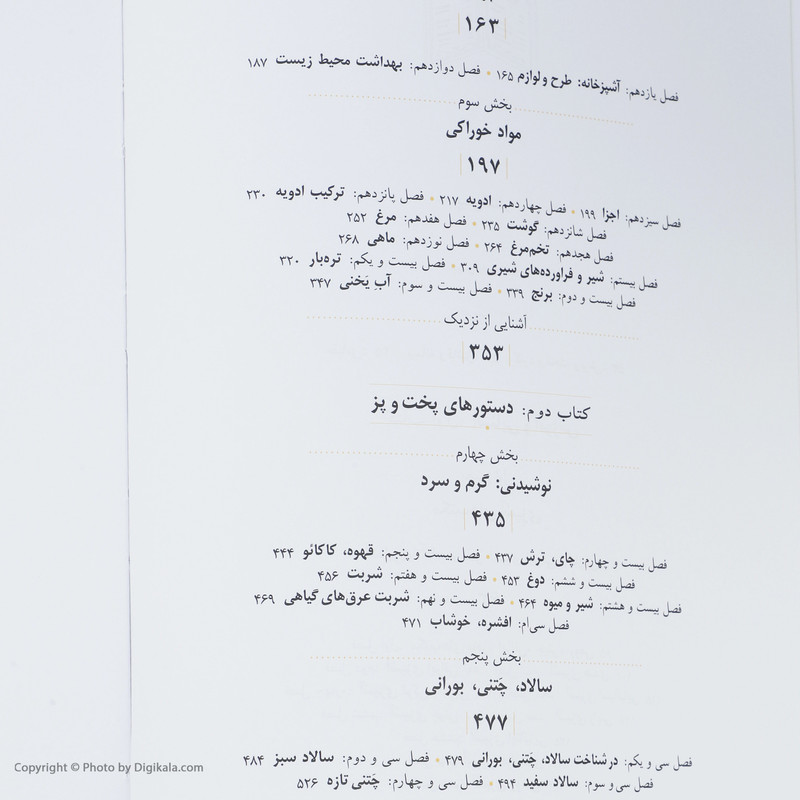 ۱۶۳
فصل یازدهم: آشپزخانه: طرح و لوازم ۱۶۵ • فصل دوازدهم: بهداشت محیط زیست ۱۸۷
بخش سوم
مواد خوراکی
۱۹۷
فصل سیزدهم: اجزا ۱۹۹ • فصل چهاردهم: ادویه ۲۱۷ • فصل پانزدهم: ترکیب ادویه ۲۳۰
فصل شانزدهم: گوشت ۲۳۵ • فصل هفدهم: مرغ ۲۵۲
فصل هجدهم: تخم‌مرغ ۲۶۴ • فصل نوزدهم: ماهی ۲۶۸
فصل بیستم: شیر و فراورده‌های شیری ۳۰۹ • فصل بیست و یکم: تره‌بار ۳۲۰
فصل بیست و دوم: برنج ۳۳۹ • فصل بیست و سوم: آبِ یَخنی ۳۴۷
آشنایی از نزدیک
۳۵۳
کتاب دوم: دستورهای پخت و پز
بخش چهارم
نوشیدنی: گرم و سرد
۴۳۵
فصل بیست و چهارم: چای، ترش ۴۳۷ • فصل بیست و پنجم: قهوه، کاکائو ۴۴۴
فصل بیست و ششم: دوغ ۴۵۳ • فصل بیست و هفتم: شربت ۴۵۶
فصل بیست و هشتم: شیر و میوه ۴۶۴ • فصل بیست و نهم: شربت عرق‌های گیاهی ۴۶۹
فصل سی‌ام: افشره، خوشاب ۴۷۱
بخش پنجم
سالاد، چَتنی، بورانی
۴۷۷
فصل سی و یکم: در شناخت سالاد، چَتنی، بورانی ۴۷۹ • فصل سی و دوم: سالاد سبز ۴۸۴
فصل سی و سوم: سالاد سفید ۴۹۴ • فصل سی و چهارم: چَتنی تازه ۵۲۶
Copyright © Photo by Digikala.com